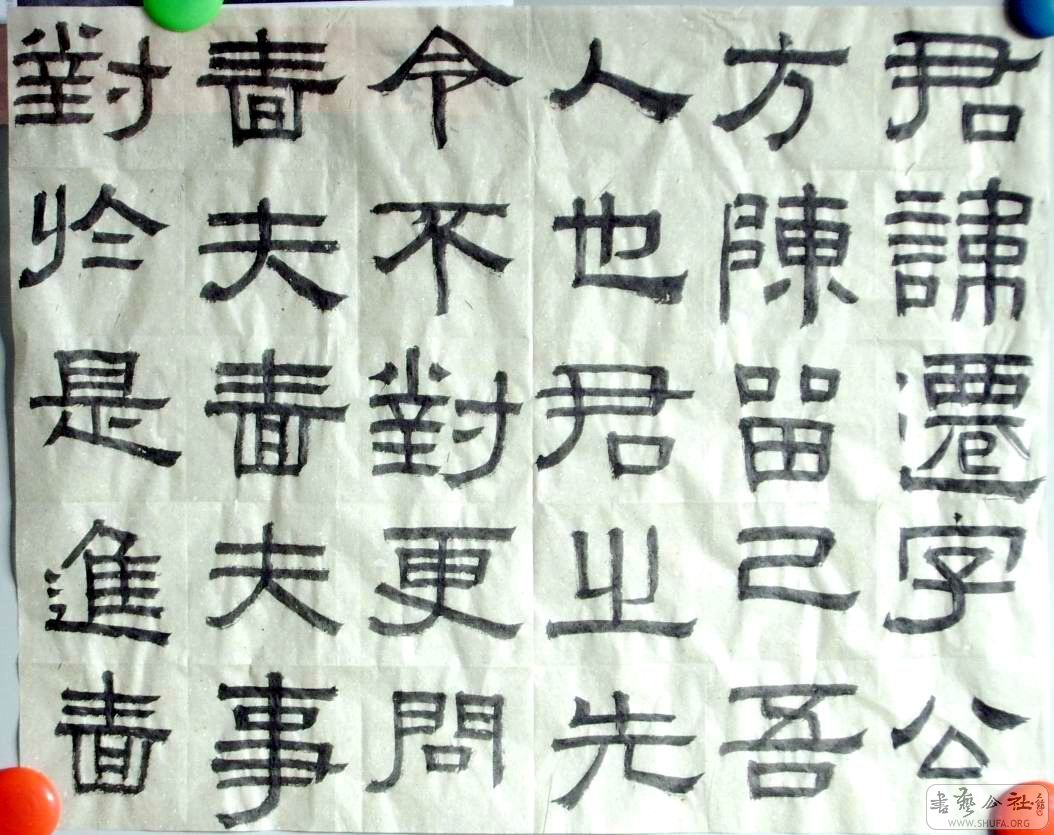 君諱遷字公
方陳留己吾
人也君之先
令不對更問
嗇夫嗇夫事
對於是進嗇
書藝公社
WWW.SHUFA.ORG